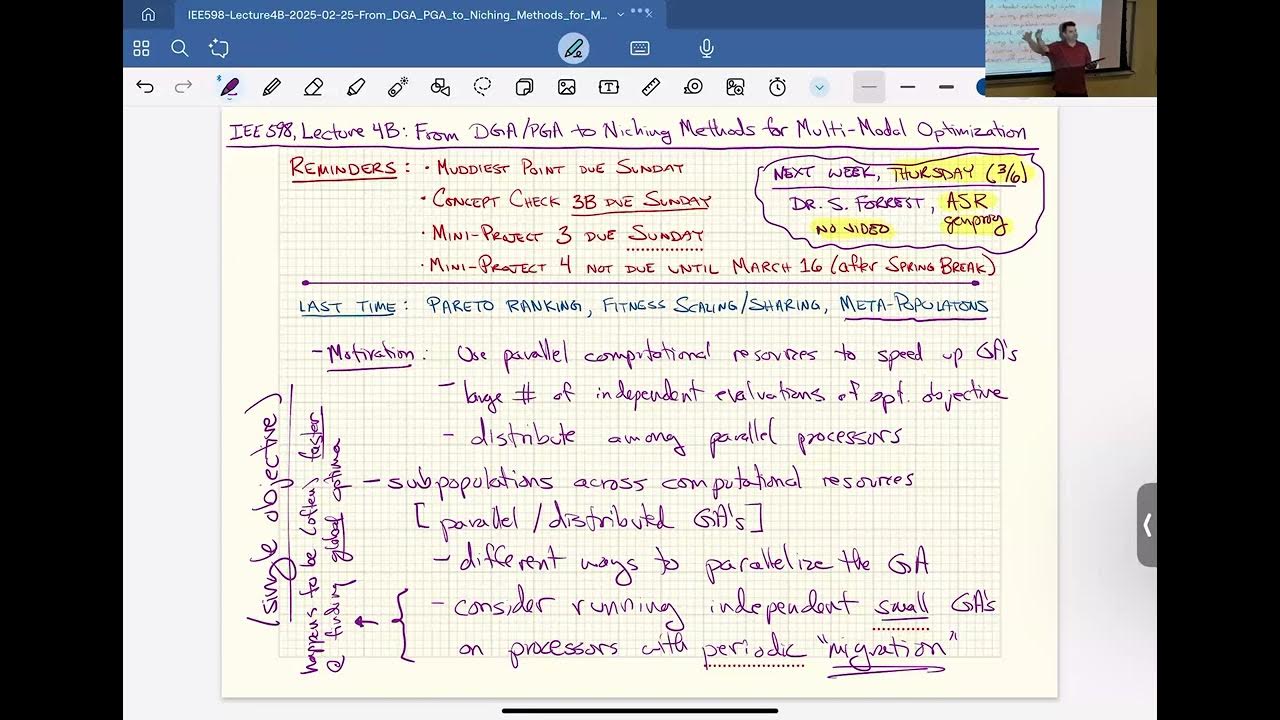 IEE598-Lecture4B-2025-02-25-From_DGA_PGA_to_Niching_Methods_for_M...
IEE 598, Lecture 4B: From DGA/PGA to Niching Methods for Multi-Modal Optimization
REMINDERS: · MUDDIEST POINT DUE SUNDAY
· CONCEPT CHECK 3B DUE SUNDAY
· MINI-PROJECT 3 DUE SUNDAY
· MINI-PROJECT 4 NOT DUE UNTIL MARCH 16 (after SPRING BREAK)
NEXT WEEK, THURSDAY (3/6)
DR. S. FORREST, ASR
NO VIDEO genprog
LAST TIME: PARETO RANKING, FITNESS SCALING/SHARING, META-POPULATONS
- Motivation: Use parallel computational resources to speed up GA's
- large # of independent evaluations of opt. objective
- distribute among parallel processors
- subpopulations across computational resources
[parallel/distributed GA's]
- different ways to parallelize the GA
- consider running independent small GA's
on processors with periodic "migration"
(single objective)
happens to be (often) faster
@ finding global optima